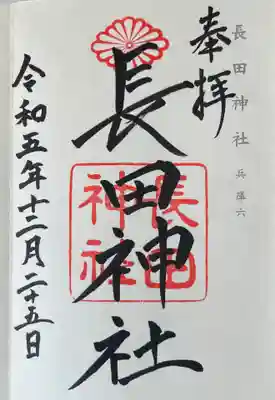 長田神社 兵庫六
奉拝
長田神社
長田神社
令和五年十二月二十五日